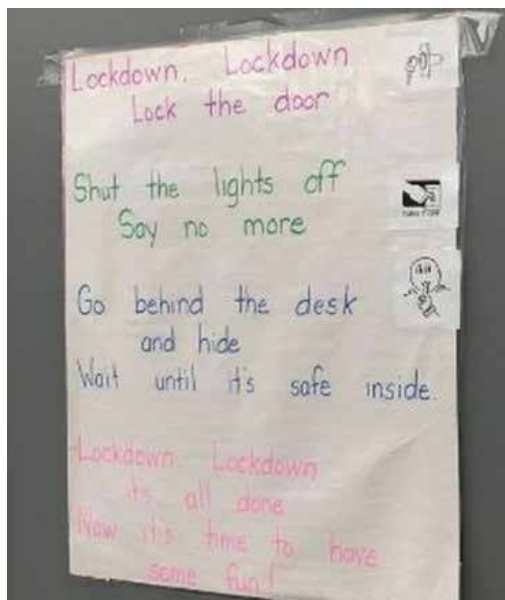 Lockdown, Lockdown
Lock the door
Shut the lights off
Say no more
Go behind the desk
and hide
Wait until it's safe inside.
Lockdown Lockdown
it's all done
Now it's time to have
some fun!